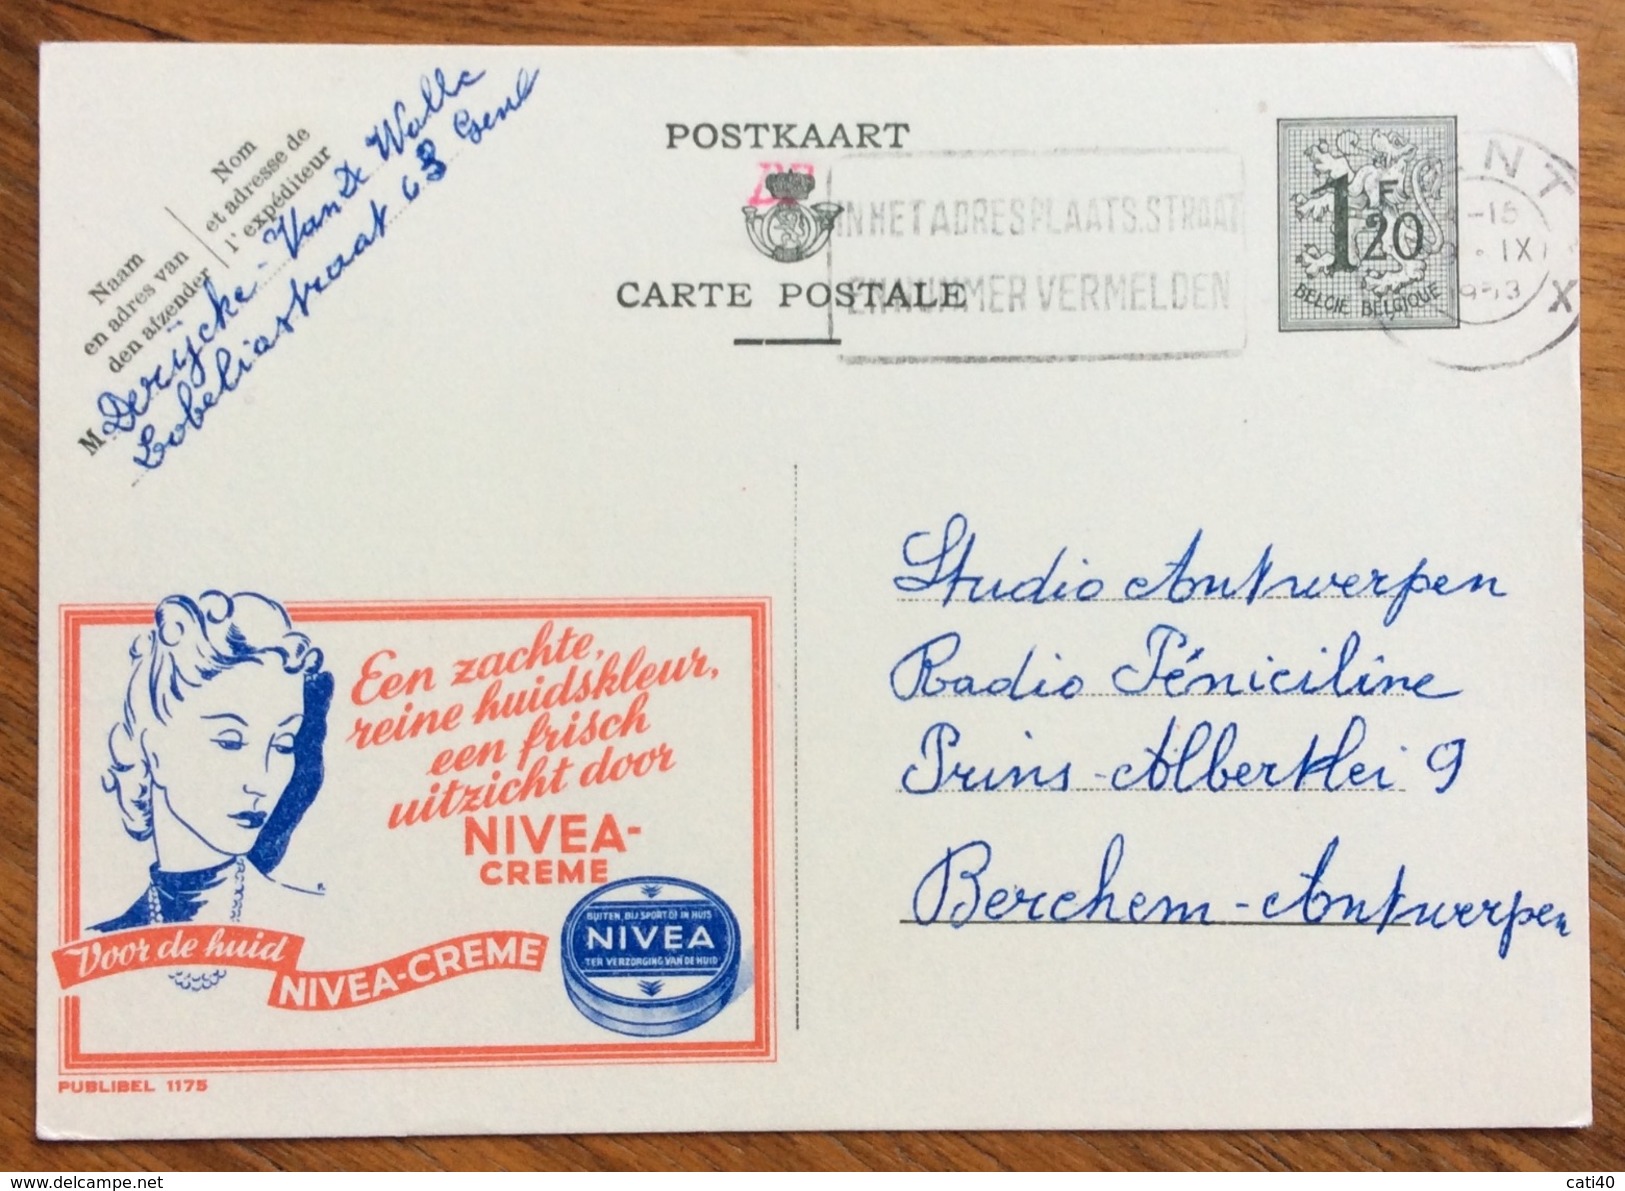 POSTKAART
CARTE POSTALE
IN HET ADRES PLAATS. STRAAT
EN NUMMER VERMELDEN
1F20
BELGIE BELGIQUE
-15
IX
1953
X
Nom
et adresse de
l'expéditeur
Naam
en adres van
den afzender
M Derijcke-Van De Walle
Lobeliastraat 63 Gent
Studio Antwerpen
Radio Péniciline
Prins-Albertlei 9
Berchem-Antwerpen
Een zachte,
reine huidskleur,
een frisch
uitzicht door
NIVEA-
CREME
BUITEN, BIJ SPORT OF IN HUIS
NIVEA
TER VERZORGING VAN DE HUID
Voor de huid
NIVEA-CREME
PUBLIBEL 1175
cati40